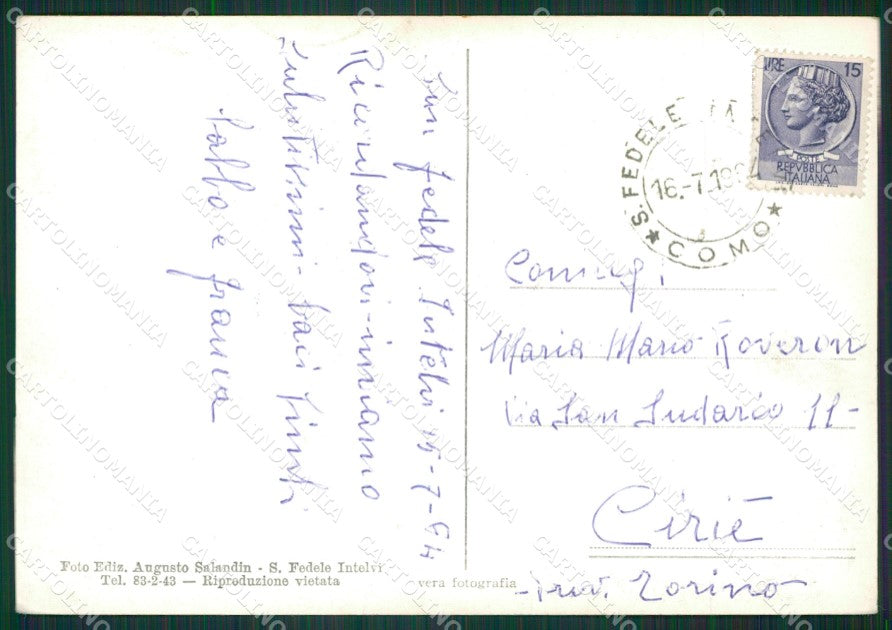 San Fedele Intelvi 15-7-64
Ricordandovi - inviamo
salutissimi - baci finiti
Pabbo e franca
LIRE 15
POSTE
REPVBBLICA
ITALIANA
S. FEDELE
16.-7.19
★ COMO ★
Coniugi
Maria Mario Roveron
Via San Sudario 11-
Ciriè
- Prov. Torino
Foto Ediz. Augusto Salandin - S. Fedele Intelvi
Tel. 83-2-43 — Riproduzione vietata
vera fotografia
CARTOLINOMANIA